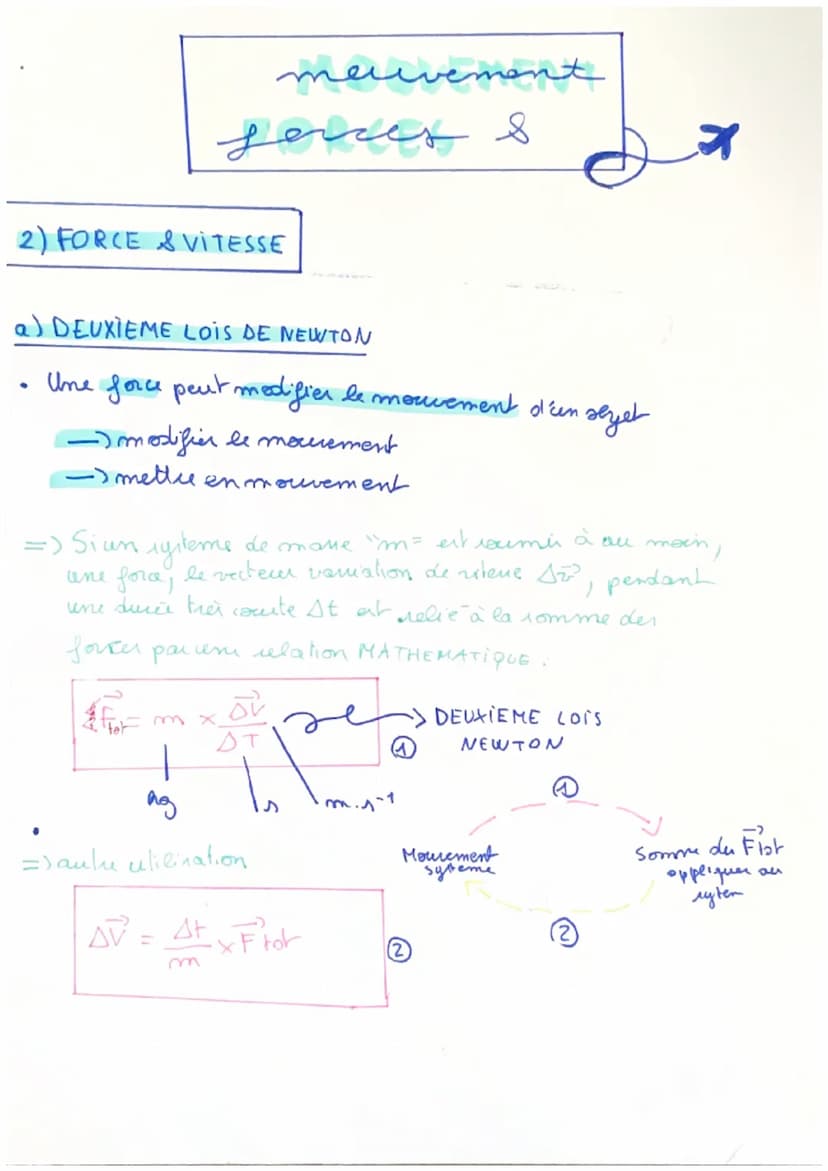 mouvement
MOUVEMENT
forces &
FORCES
2) FORCE & ViTESSE
a) DEUXIEME LOiS DE NEWTON
• Une force peut modifier le mouvement d'un
—> modifier le mouvement
—> mettre en mouvement
=> Si un système de masse "m" est soumis à au moin,
une force, le vecteur variation de vitesse Δv, pendant
une durée très courte Δt est relié à la somme des
forces par une relation MATHEMATiQUE.
Ftot = m × ΔV / ΔT
—> DEUXIEME LOiS
① NEWTON
kg s m.s⁻¹
①
=> autre utilisation
Mouvement
système
Somme des Ftot
appliquer au
system
ΔV = Δt / m × F tot
②
②